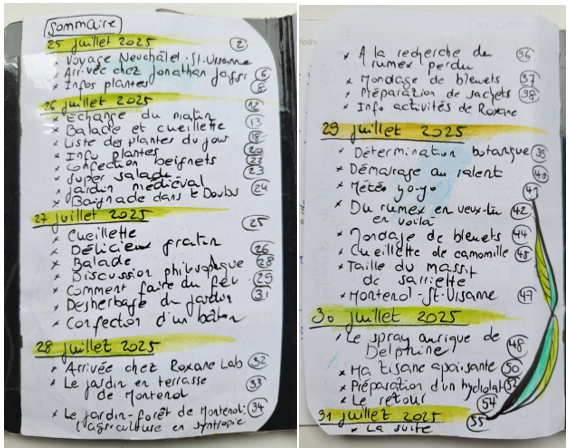 Sommaire
25 juillet 2025
x Voyage Neuchâtel-St-Ursanne 2
x Arrivée chez Jonathan 6
x Infos plantes 8
26 juillet 2025 12
x Echange du matin
x Balade et cueillette 13
x Liste des plantes du jour 18
x Info plantes 20
x Confection beignets 22
x Super salade 23
x Jardin médiéval
x Baignade dans le Doubs 24
27 juillet 2025 25
x Cueillette
x Délicieux gratin 26
x Balade 28
x Discussion philosophique
x Comment faire du feu 29
x Desherbage du jardin 31
x Confection d'un bâton
28 juillet 2025
x Arrivée chez Roxane Lab 32
x Le jardin en terrasse 33
de Montenol
x Le jardin-forêt de Montenol: 34
l'agriculture en syntropie
x A la recherche du 36
rumex perdu
x Mondage de bleuets 37
x Préparation de sachets 38
x Info activités de Roxane
29 juillet 2025
x Détermination botanique 39
x Démarrage au ralenti 40
x Météo yo-yo 41
x Du rumex en veux-tu 42
en voilà
x Mondage de bleuets 44
x Cueillette de camomille 45
x Taille du massif
de sarriette
x Montenol-St-Ursanne 47
30 juillet 2025
x Le spray aurique de 48
Delphine
x Ma tisane apaisante 50
x Préparation d'un hydrolat 52
x Le retour 54
31 juillet 2025 55
x La suite